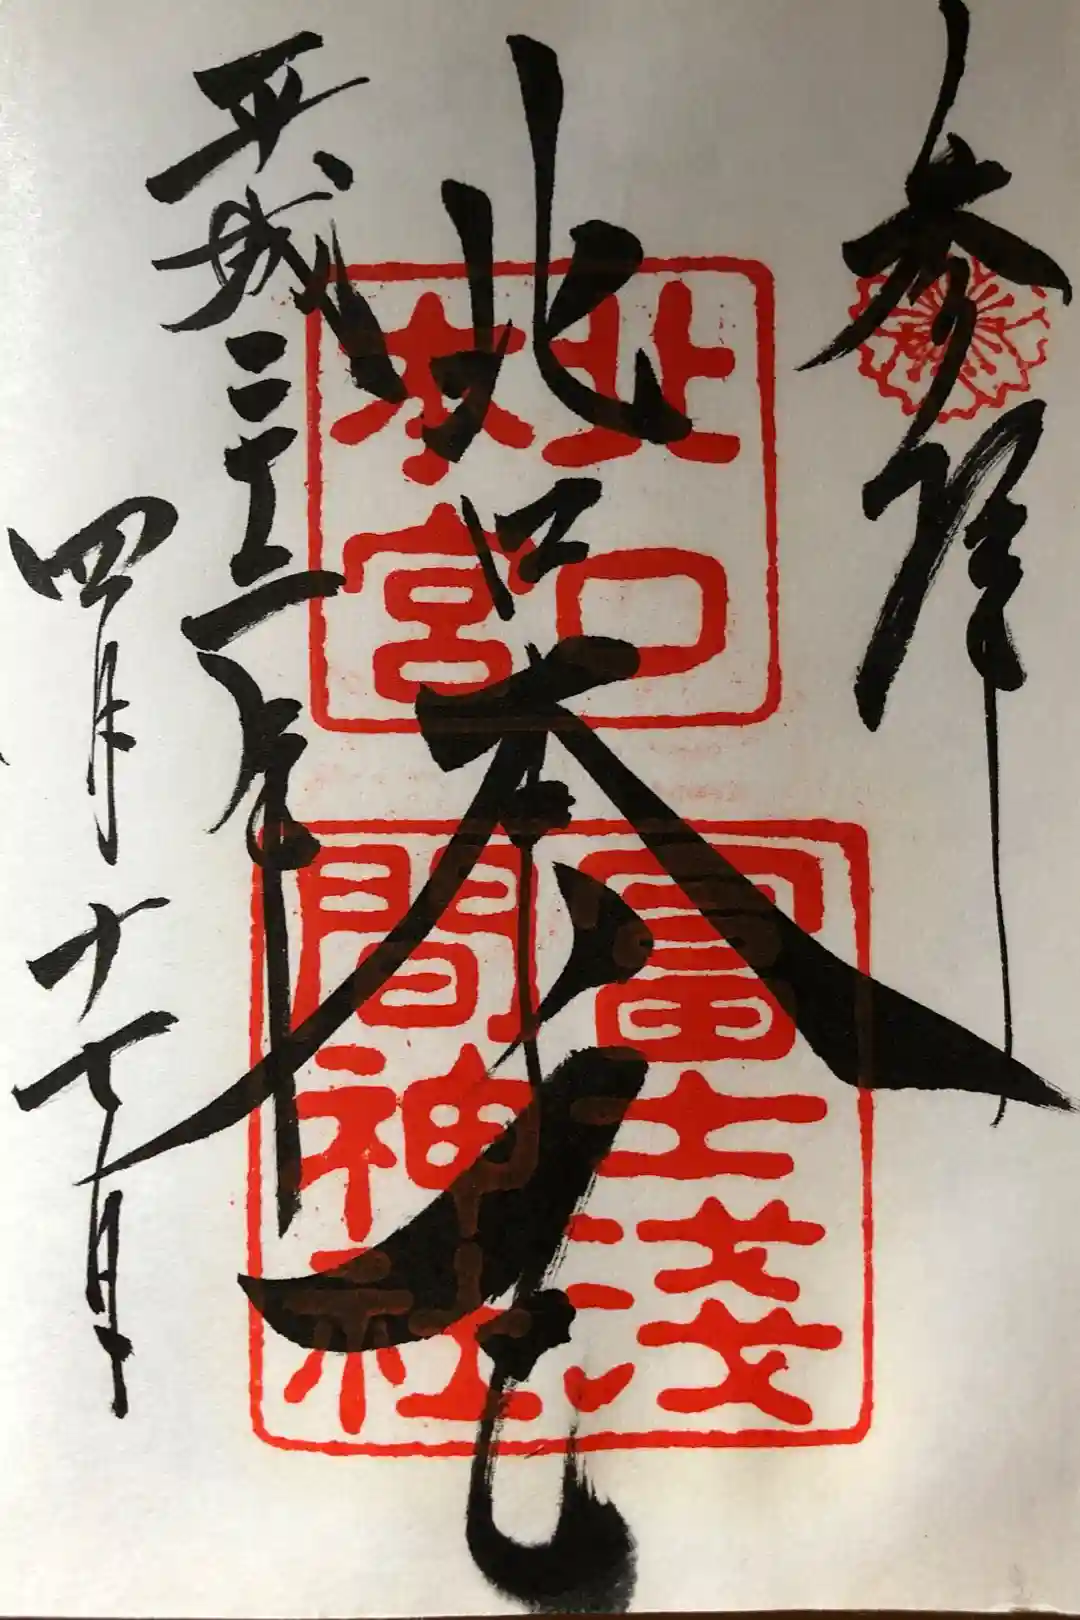 奉拝
北口本宮
北口
本宮
冨士淺
間神社
平成
四月十七日